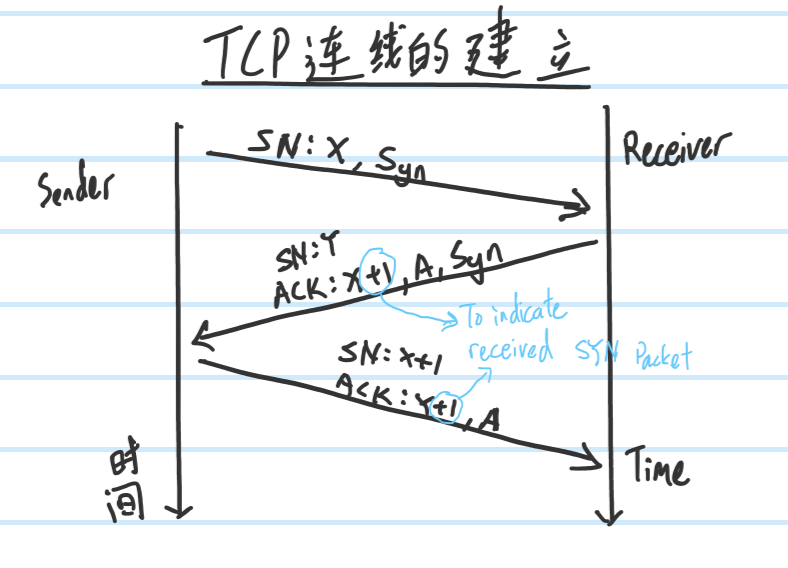 TCP连线的建立
Sender
Receiver
SN: X, Syn
SN:Y
ACK: X+1, A, Syn
To indicate
received SYN Packet
SN: X+1
ACK: Y+1, A
时间
Time